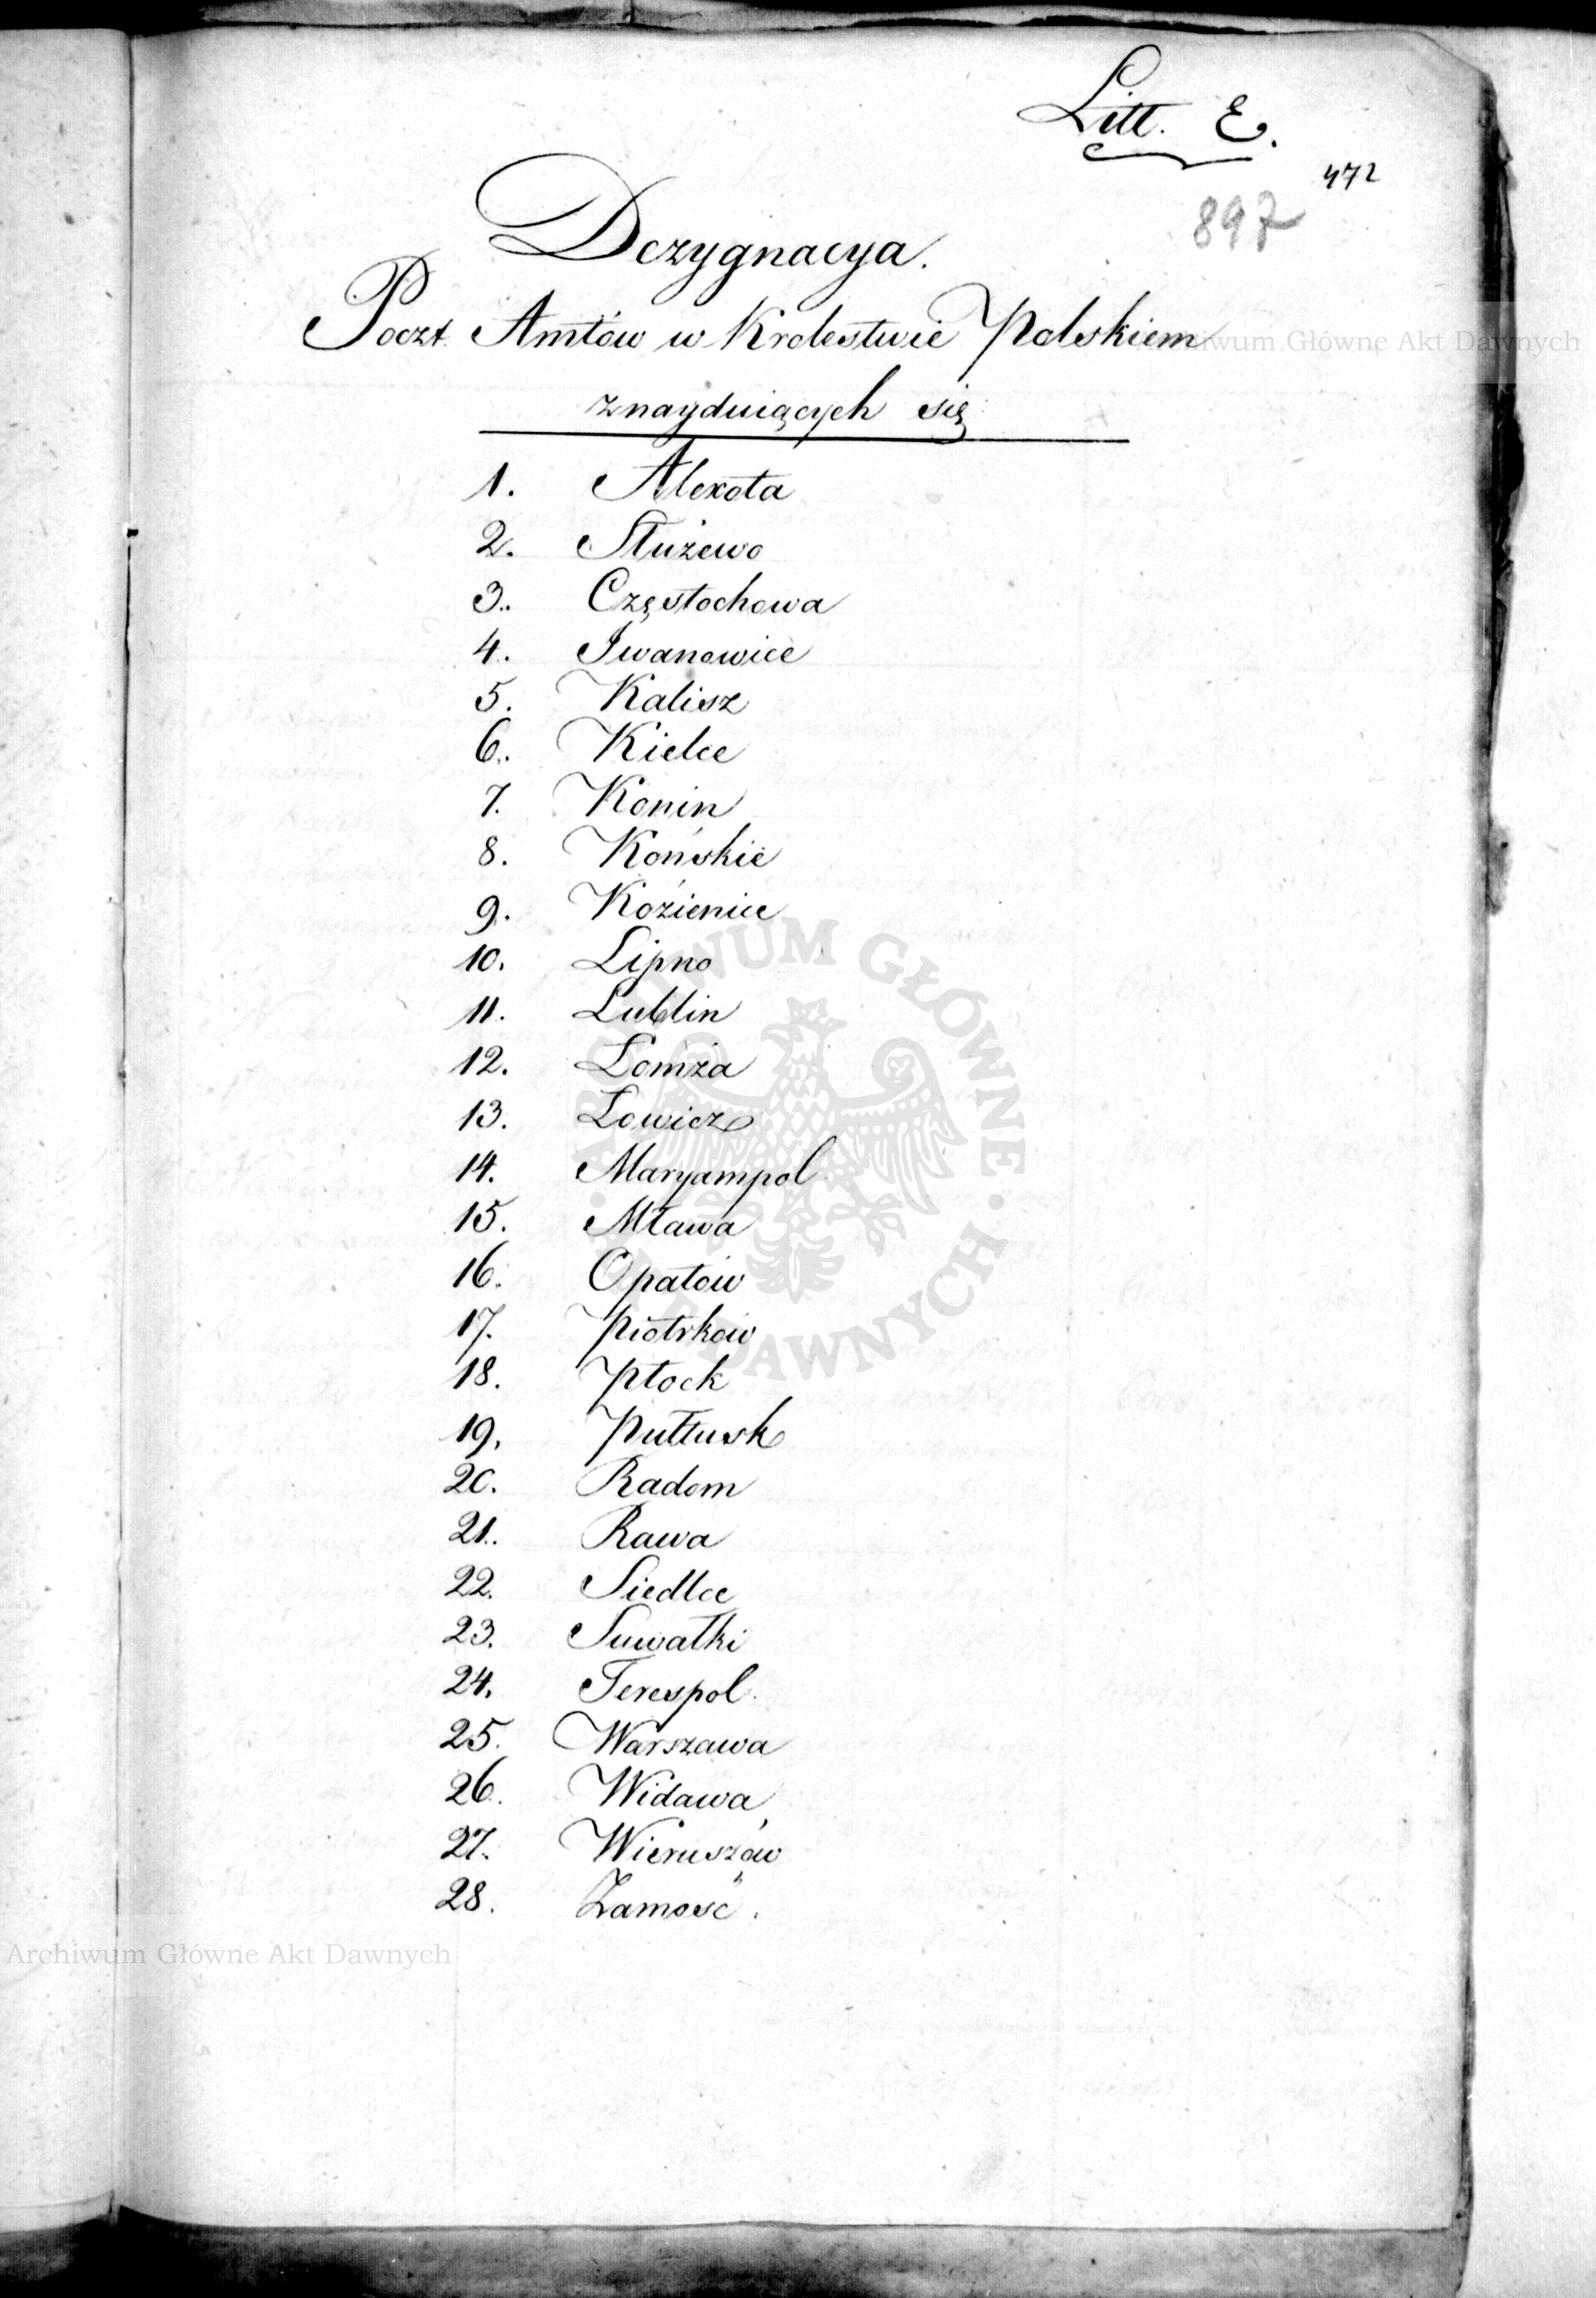 Litt. E.
472
897
Dezygnacya.
Poczt Amtów w Krolestwie Polskiem
znayduiących się
1. Alexota
2. Służewo
3. Częstochowa
4. Iwanowice
5. Kalisz
6. Kielce
7. Konin
8. Końskie
9. Koźienice
10. Lipno
11. Lublin
12. Łomża
13. Łowicz
14. Maryampol
15. Mława
16. Opatów
17. Piotrków
18. Płock
19. Pułtusk
20. Radom
21. Rawa
22. Siedlce
23. Suwałki
24. Terespol
25. Warszawa
26. Widawa
27. Wieruszów
28. Zamość.
Archiwum Główne Akt Dawnych
ARCHIWUM GŁÓWNE AKT DAWNYCH
Archiwum Główne Akt Dawnych